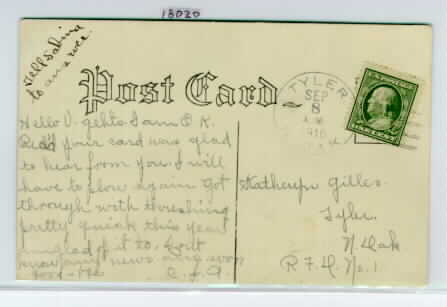 18020
Tell Sabina
to ans
Post Card
TYLER
SEP
8
A.M.
1910
U.S. POSTAGE
Hello
I am O K.
Rec'd your card was glad
to hear form you. I will
have to plow again got
through with threshing
pretty quick this year
am glad of it to.
know any news
Katheryn Gilles
Tyler
N. Dak
R. F. D. No. 1.